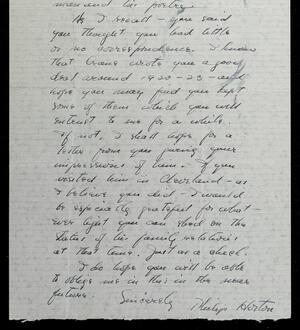 man and his poetry.
As I recall - you said
you thought you had little
or no correspondence. I know
that Crane wrote you a good
deal around 1922-23 - and
hope you may find you kept
some of them which you will
entrust to me for a while.
If not, I shall hope for a
letter from you giving your
impressions of him. If you
visited him in Cleveland - as
I believe you did - I would
be especially grateful for what
ever light you can shed on the
status of his family relations
at that time. Just as a check.
I do hope you will be able
to oblige me in this in the near
future.
Sincerely
Philip Horton